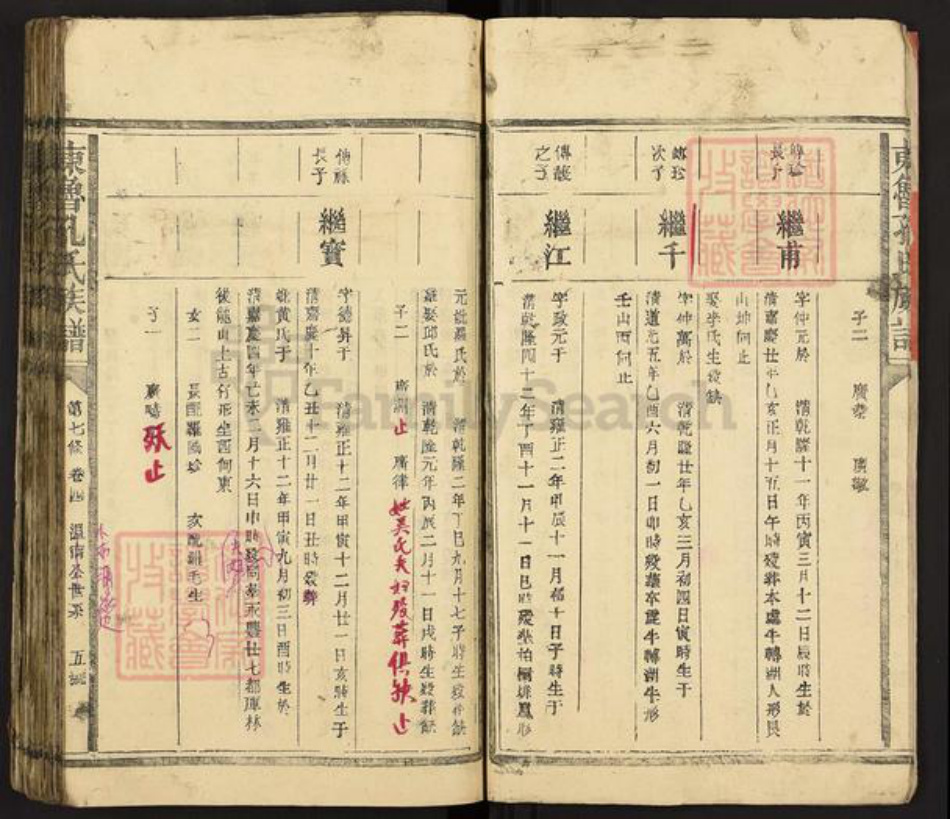 東魯孔氏族譜
子二 廣 廣敏
傳珍
長子
繼甫
字仲元於 清乾隆十一年丙寅三月十二日辰時生於
清嘉慶廿年乙亥正月十五日午時歿葬本處牛轉湖人形艮
山坤向止
娶李氏生歿缺
傳珍
次子
繼千
字仲萬於 清乾隆廿年乙亥三月初四日寅時生于
清道光五年乙酉六月初一日卯時歿葬本處牛轉湖牛形
壬山丙向止
傳
之子
繼江
字政元于 清雍正二年甲辰十一月初十日子時生于
清乾隆四十二年丁酉十一月十一日巳時歿葬柏樹排鳳形
元妣 氏於 清乾隆二年丁巳九月十七子時生歿葬缺
繼娶邱氏於 清乾隆元年丙辰二月十一日戌時生歿葬缺
子二 廣洲 止 廣律 妣吴氏夫婦歿葬俱缺止
傳
長子
繼寶
字德昇于 清雍正十二年甲寅十二月廿一日亥時生于
清嘉慶十年乙丑十二月廿一日丑時歿葬
妣黃氏于 清雍正十二年甲寅九月初三日酉時生於
清嘉慶四年己未二月十六日申時歿 永豐廿七都
後龍山上 形坐酉向東
女二 長配羅 珍 次配羅毛生
子一 廣 歿止
東魯孔氏族譜
第七修 卷四 溫南公世系 五
FamilySearch